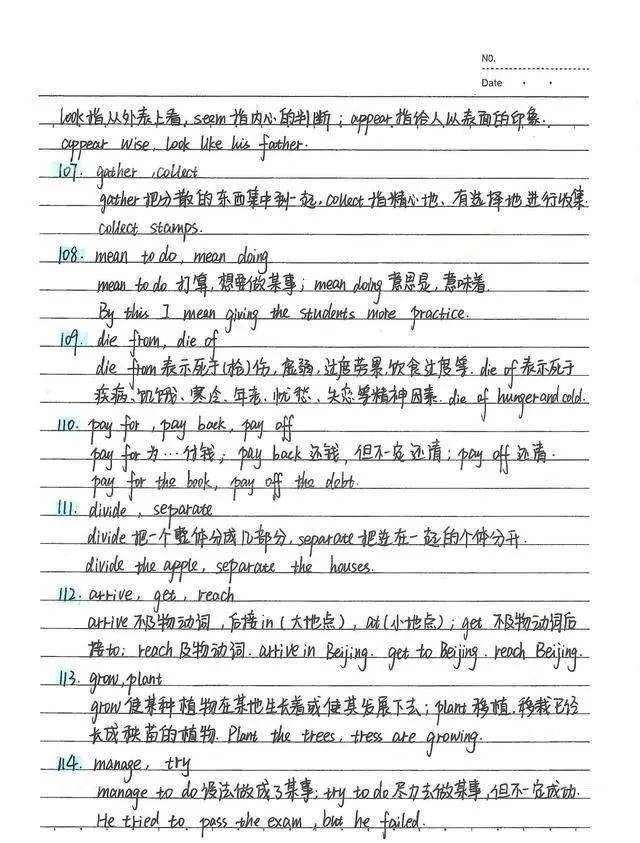 NO.
Date
look指从外表上看,seem指内心的判断;appear指给人以表面的印象.
appear wise, look like his father.
107. gather, collect
gather把分散的东西集中到一起,collect指精心地、有选择地进行收集
collect stamps.
108. mean to do, mean doing
mean to do 打算,想要做某事; mean doing 意思是,意味着.
By this I mean giving the students more practice.
109. die from, die of
die from表示死于(枪)伤,虚弱,过度劳累,饮食过度等. die of表示死于
疾病、饥饿、寒冷、年老、忧愁、失恋等精神因素. die of hunger and cold.
110. pay for, pay back, pay off
pay for为…付钱; pay back 还钱,但不一定还清; pay off 还清.
pay for the book, pay off the debt.
111. divide, separate
divide 把一个整体分成几部分, separate 把连在一起的个体分开.
divide the apple, separate the houses.
112. arrive, get, reach
arrive 不及物动词,后接in(大地点), at(小地点); get 不及物动词后
接to; reach 及物动词. arrive in Beijing. get to Beijing. reach Beijing.
113. grow, plant
grow使某种植物在某地生长着或使其发展下去; plant 移植.移栽已经
长成秧苗的植物. Plant the trees, tress are growing.
114. manage, try
manage to do 设法做成了某事; try to do 尽力去做某事,但不一定成功.
He tried to pass the exam, but he failed.